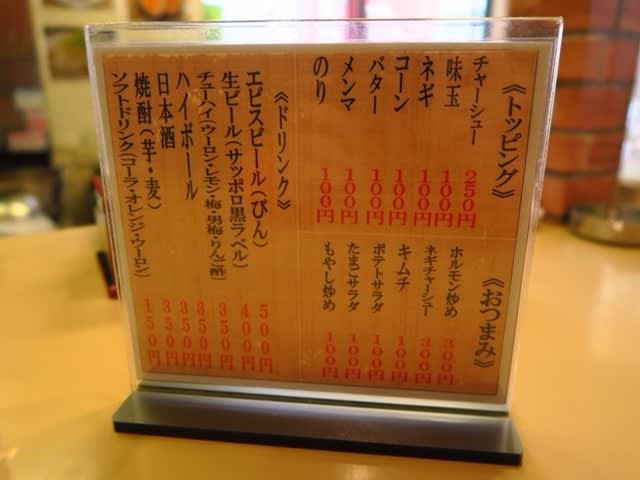 《トッピング》
チャーシュー 250円
味玉 100円
ネギ 100円
コーン 100円
バター 100円
メンマ 100円
のり 100円
《おつまみ》
ホルモン炒め 300円
ネギチャーシュー 300円
キムチ 100円
ポテトサラダ 100円
たまごサラダ 100円
もやし炒め 100円
《ドリンク》
エビスビール(びん) 500円
生ビール(サッポロ黒ラベル) 400円
チューハイ(ウーロン・レモン・梅・男梅・りんご酢) 350円
ハイボール 350円
日本酒 350円
焼酎(芋・麦) 350円
ソフトドリンク(コーラ・オレンジ・ウーロン) 150円